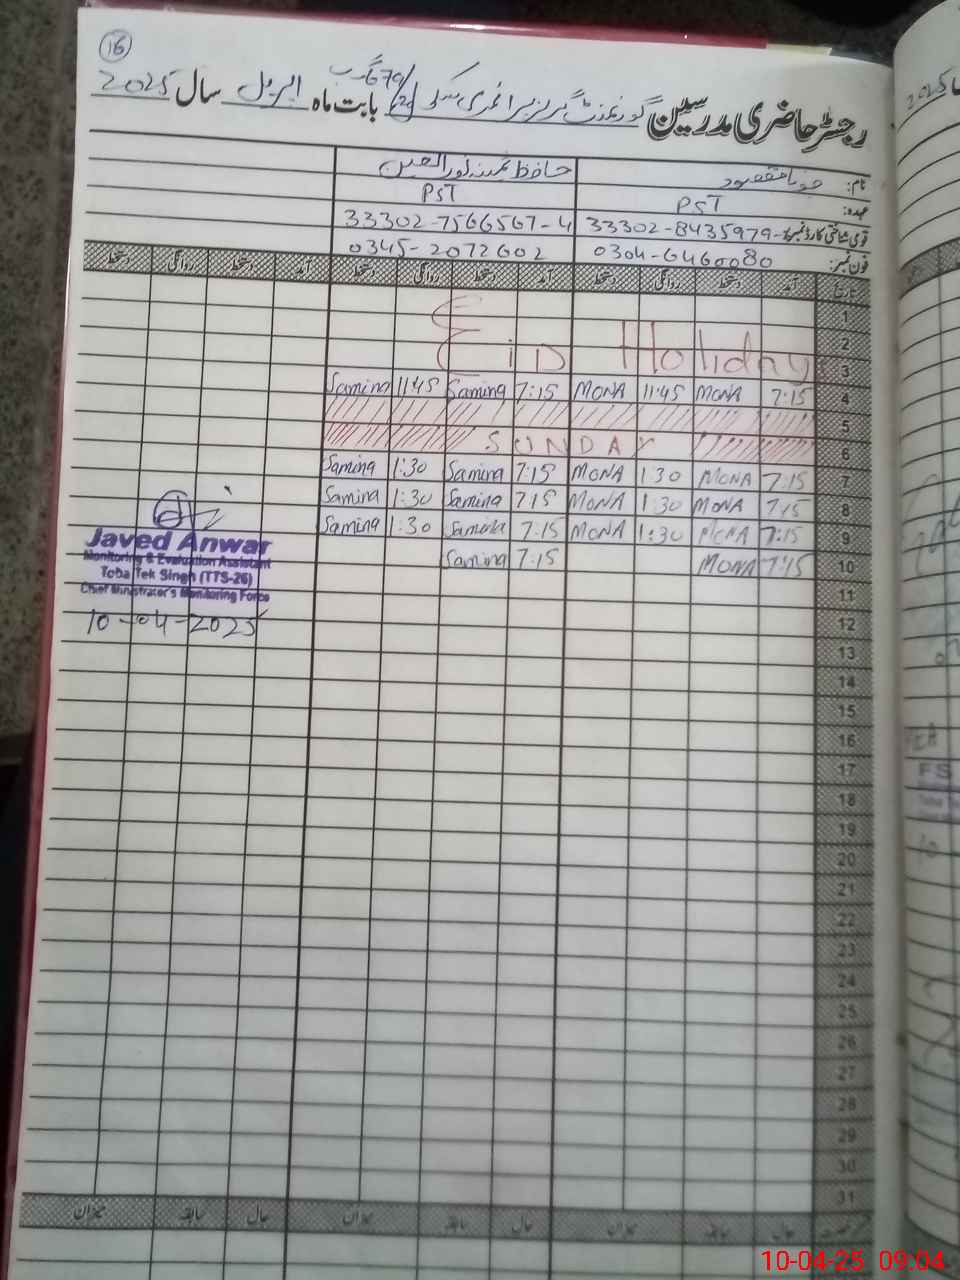 16
رجسٹر حاضری مدرسین گورنمنٹ گرلز پرائمری سکول 679/20 گ ب بابت ماہ اپریل سال 2025
نام: مونا مقصود حافظ ثمینہ نورالعین
عہدہ: PST PST
قومی شناختی کارڈ نمبر: 33302-8435979- 33302-7566567-4
فون نمبر: 0304-6460080 0345-2072602
تاریخ آمد دستخط روانگی دستخط آمد دستخط روانگی دستخط آمد دستخط روانگی دستخط
1
2
Eid Holiday
3
Samina 11:45 Samina 7:15 MONA 11:45 MONA 7:15 4
5
SUNDAY 6
Samina 1:30 Samina 7:15 MONA 1:30 MONA 7:15 7
Samina 1:30 Samina 7:15 MONA 1:30 MONA 7:15 8
Samina 1:30 Samina 7:15 MONA 1:30 MONA 7:15 9
Samina 7:15 MONA 7:15 10
Javed Anwar
Monitoring & Evaluation Assistant
Toba Tek Singh (TTS-26)
Chief Minister's Monitoring Force
10-04-2025
11
12
13
14
15
16
17
18
19
20
21
22
23
24
25
26
27
28
29
30
31
حال سابقہ میزان حال سابقہ میزان حال سابقہ میزان
2025
FS
10
10-04-25 09:04